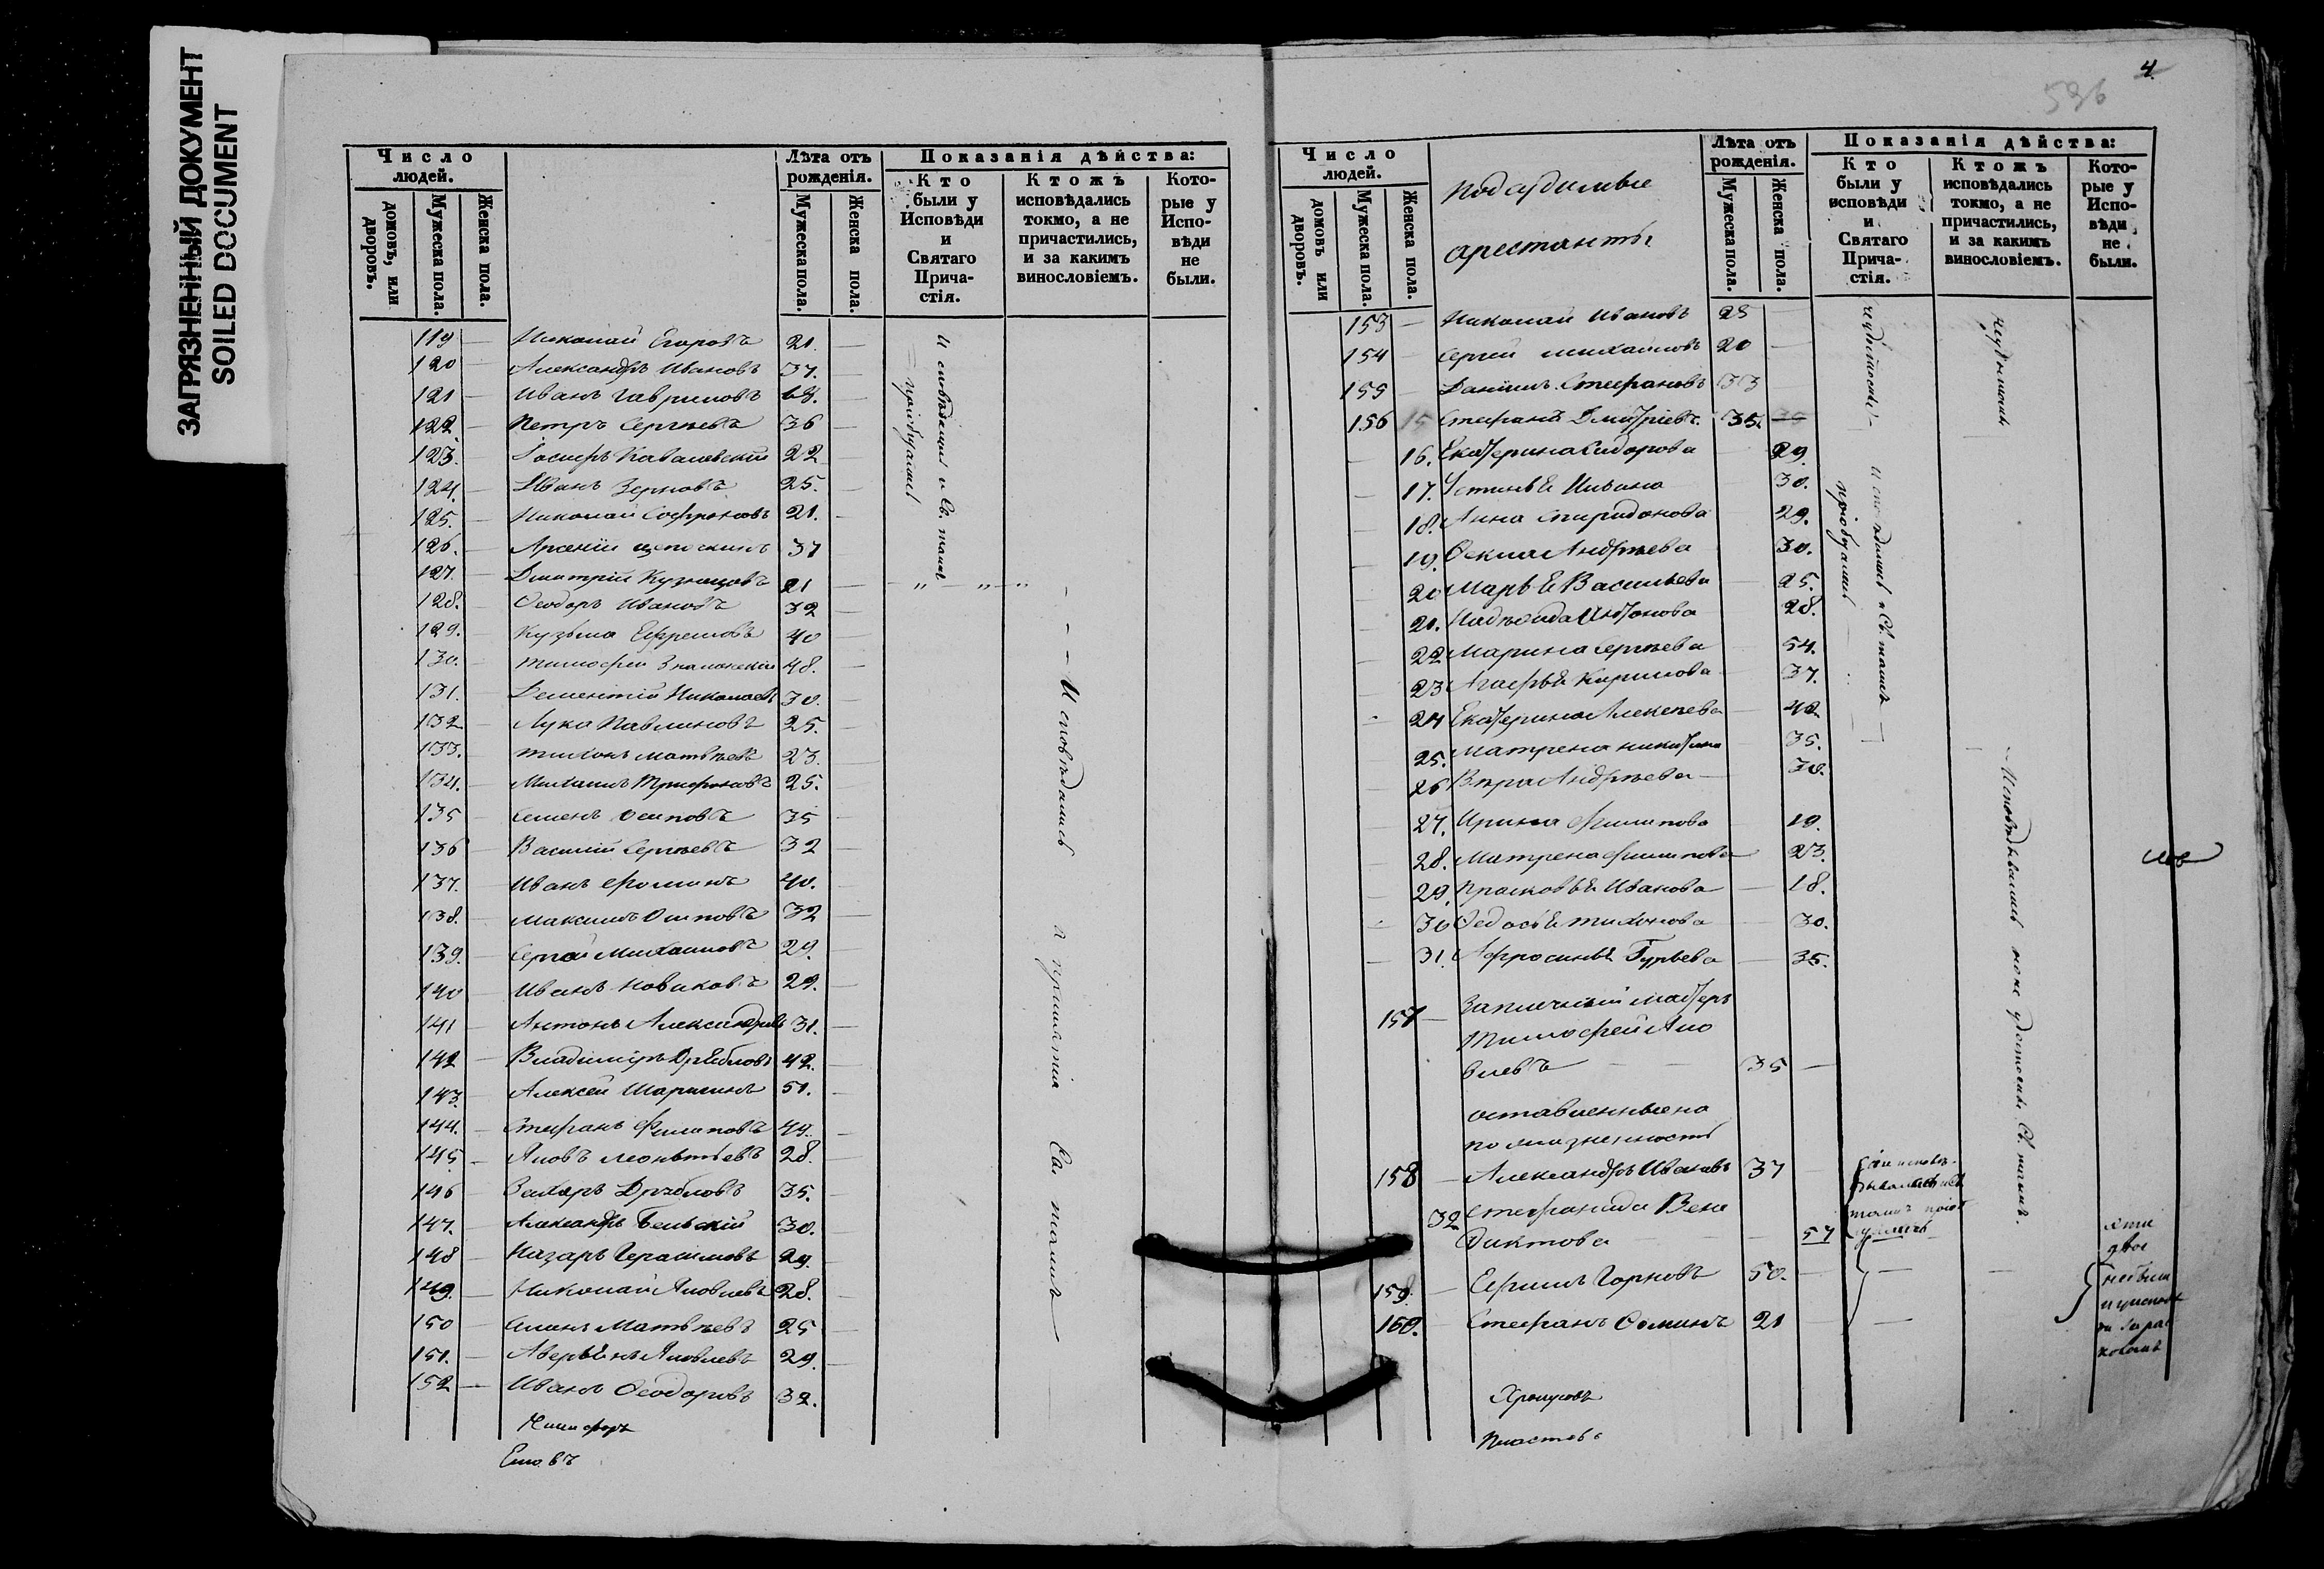 ЗАГРЯЗНЕННЫЙ ДОКУМЕНТ
SOILED DOCUMENT
Число людей.
домовъ, или дворовъ.
Мужеска пола.
Женска пола.
Лѣта отъ рожденія.
Мужеска пола.
Женска пола.
Показанія дѣйства:
Кто были у Исповѣди и Святаго Прича-стія.
Ктожъ исповѣдались токмо, а не причастились, и за какимъ винословіемъ.
Кото-рые у Испо-вѣди не были.
119 Николай Егоровъ 21.
120 Александръ Ивановъ 37.
121 Иванъ Гавриловъ 48.
122 Петръ Сергѣевъ 36
123. Іосифъ Ковалевскій 22
124. Иванъ Зерновъ 25.
125. Николай Софроновъ 21.
126. Арсеній 37
127. Дмитрій Кузнецовъ 21
128. Ѳеодоръ Ивановъ 32
129. Кузьма Ефремовъ 40
130. Тимофей 48.
131. Дементій Николаевъ 30.
132 Лука Павлиновъ 25.
133. Тихонъ Матвѣевъ 23.
134. Михаилъ Трифоновъ 25.
135 Семенъ Осиповъ 35
136 Василій Сергѣевъ 32
137. Иванъ Фоминъ 40.
138. Максимъ Осиповъ 32
139. Сергѣй Михайловъ 29.
140 Иванъ Новиковъ 29.
141 Антонъ Александровъ 31.
142 Владиміръ 42.
143. Алексей Шаригинъ 51.
144. Стефанъ Филиповъ 44.
145. Яковъ Леонтьевъ 28.
146 Захаръ 35.
147. Александръ Бельскій 30.
148 Назаръ Герасимовъ 29.
149. Николай Яковлевъ 28.
150 Матвѣевъ 25
151. Аверьянъ Яковлевъ 29.
152 Иванъ Ѳеодоровъ 32.
Никифоръ
Исповѣдались и Св. таинъ
пріобщались
Исповѣдались и принятія Св. таинъ
4.
536
Число людей.
домовъ или дворовъ.
Мужеска пола.
Женска пола.
подсудимые
арестанты
Лѣта отъ рожденія.
Мужеска пола.
Женска пола.
Показанія дѣйства:
Кто были у исповѣди и Святаго Прича-стія.
Ктожъ исповѣдались токмо, а не причастились, и за какимъ винословіемъ.
Кото-рые у Испо-вѣди не были.
153 Николай Ивановъ 28
154 Сергей Михайловъ 20
155 Даніилъ Стефановъ 33
156 15 Стефанъ Дмитріевъ 35.
16. Екатерина Сидорова 29.
17. Устинья Ильина 30.
18. Анна Спиридонова 29.
19. Ѳекла Андрѣева 30.
20 Марья Васильева 25.
21. Надежда Антонова 28.
22 Марина Сергѣева 54.
23 Агафья Кирилова 37.
24 Екатерина Алексѣева 42
25. Матрена Никитина 35.
26 Вѣра Андрѣева 30.
27. Ирина Филипова 19.
28. Матрена Филипова 23.
29. Прасковья Иванова 18.
30 Ѳедосья Тихонова 30.
31. Афросинья Гурьева 35.
157 Заплечный мастеръ
Тимофей Яко
влевъ 35
оставленные на
158 Александръ Ивановъ 37
32 Стефанида Вене
диктова 57
159. Ефимъ Горновъ 50.
160. Стефанъ Ѳоминъ 21
Исповѣдались и Св. таинъ
пріобщались
двое